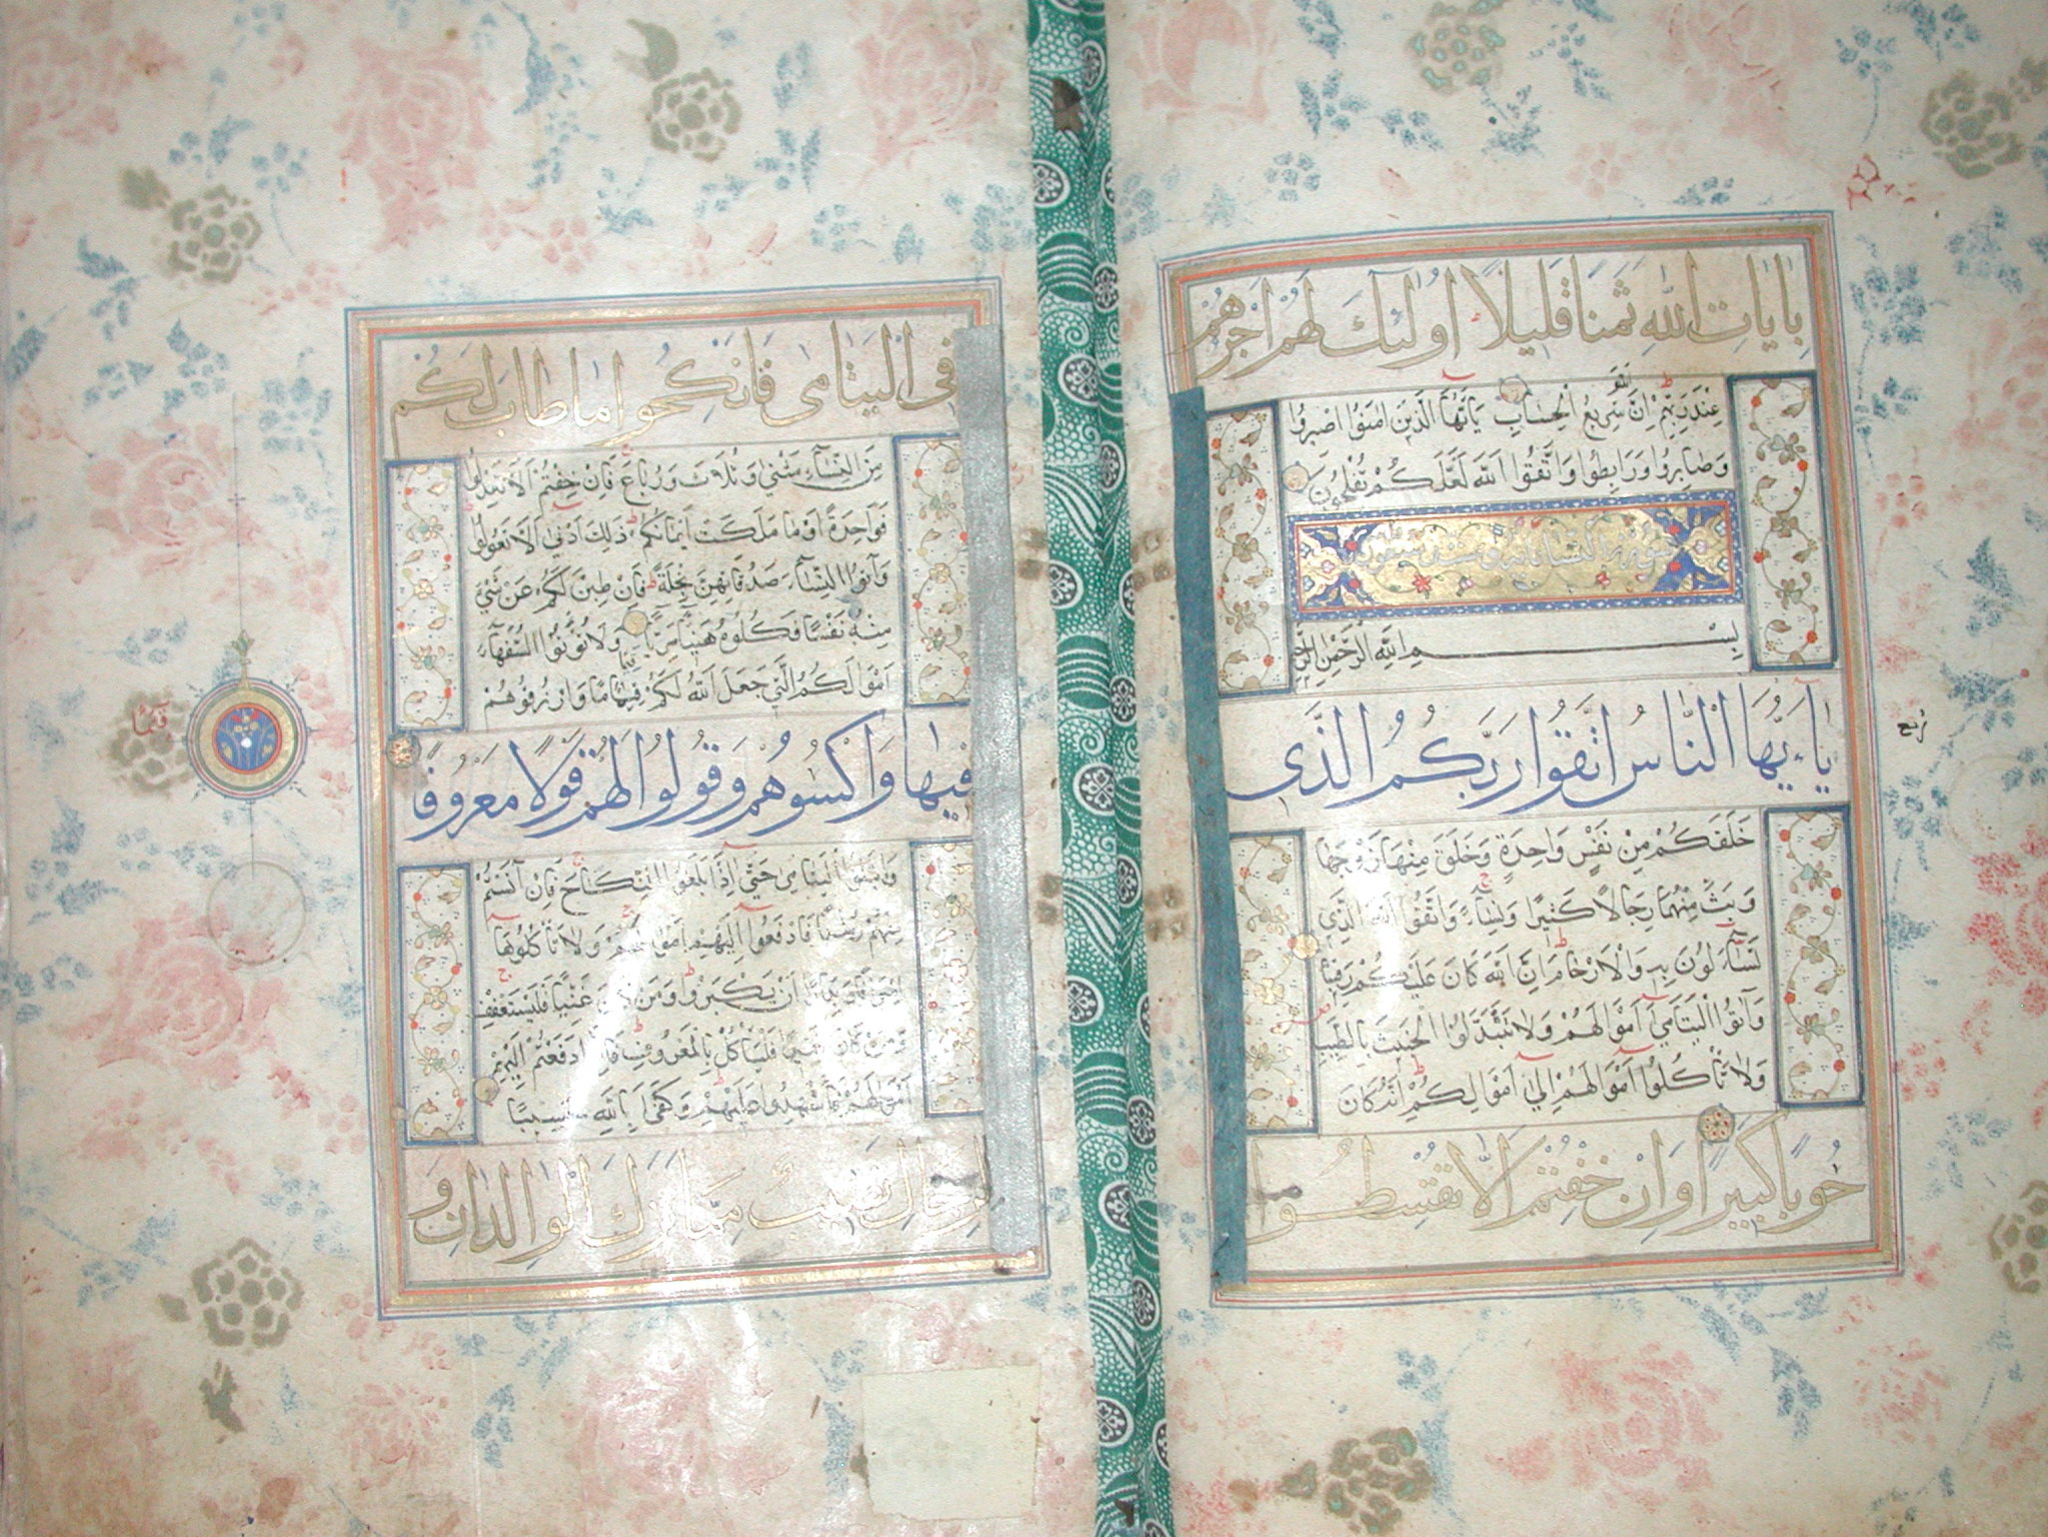 بایات الله ثمنا قلیلا اولئك لهم اجرهم
عِنْدَ رَبِّهِمْ اِنَّ الله سَرِيعُ الْحِسَابِ يَآاَيُّهَا الَّذِينَ اٰمَنُوا اصْبِرُوا
وَصَابِرُوا وَرَابِطُوا وَاتَّقُوا اللّٰهَ لَعَلَّكُمْ تُفْلِحُونَ
سورة النساء
بِسْمِ اللّٰهِ الرَّحْمٰنِ الرَّحِيمِ
يَاءَيُّهَا النَّاسُ اتَّقُوا رَبَّكُمُ الَّذِى
خَلَقَكُمْ مِنْ نَفْسٍ وَاحِدَةٍ وَخَلَقَ مِنْهَا زَوْجَهَا
وَبَثَّ مِنْهُمَا رِجَالًا كَثِيرًا وَنِسَآءً وَاتَّقُوا اللّٰهَ الَّذِي
تَسَآءَلُونَ بِهِ وَالْاَرْحَامَ اِنَّ اللّٰهَ كَانَ عَلَيْكُمْ رَقِيبًا
وَآتُوا الْيَتَامٰى اَمْوَالَهُمْ وَلَا تَتَبَدَّلُوا الْخَبِيثَ بِالطَّيِّبِ
وَلَا تَأْكُلُوا اَمْوَالَهُمْ اِلٰى اَمْوَالِكُمْ اِنَّهُ كَانَ
حُوبًا كَبِيرًا وَاِنْ خِفْتُمْ اَلَّا تُقْسِطُوا
ربع
فِى الْيَتَامٰى فَانْكِحُوا مَا طَابَ لَكُمْ
مِنَ النِّسَآءِ مَثْنٰى وَثُلَاثَ وَرُبَاعَ فَاِنْ خِفْتُمْ اَلَّا تَعْدِلُوا
فَوَاحِدَةً اَوْ مَا مَلَكَتْ اَيْمَانُكُمْ ذٰلِكَ اَدْنٰى اَلَّا تَعُولُوا
وَآتُوا النِّسَآءَ صَدُقَاتِهِنَّ نِحْلَةً فَاِنْ طِبْنَ لَكُمْ عَنْ شَيْءٍ
مِنْهُ نَفْسًا فَكُلُوهُ هَنِيئًا مَرِيئًا وَلَا تُؤْتُوا السُّفَهَآءَ
اَمْوَالَكُمُ الَّتِي جَعَلَ اللّٰهُ لَكُمْ قِيَامًا وَارْزُقُوهُمْ
فِيهَا وَاكْسُوهُمْ وَقُولُوا لَهُمْ قَوْلًا مَعْرُوفًا
وَابْتَلُوا الْيَتَامٰى حَتّٰى اِذَا بَلَغُوا النِّكَاحَ فَاِنْ آنَسْتُمْ
مِنْهُمْ رُشْدًا فَادْفَعُوا اِلَيْهِمْ اَمْوَالَهُمْ وَلَا تَأْكُلُوهَا
اِسْرَافًا وَبِدَارًا اَنْ يَكْبَرُوا وَمَنْ كَانَ غَنِيًّا فَلْيَسْتَعْفِفْ
وَمَنْ كَانَ فَقِيرًا فَلْيَأْكُلْ بِالْمَعْرُوفِ فَاِذَا دَفَعْتُمْ اِلَيْهِمْ
اَمْوَالَهُمْ فَاَشْهِدُوا عَلَيْهِمْ وَكَفٰى بِاللّٰهِ حَسِيبًا
لِلرِّجَالِ نَصِيبٌ مِمَّا تَرَكَ الْوَالِدَانِ وَ